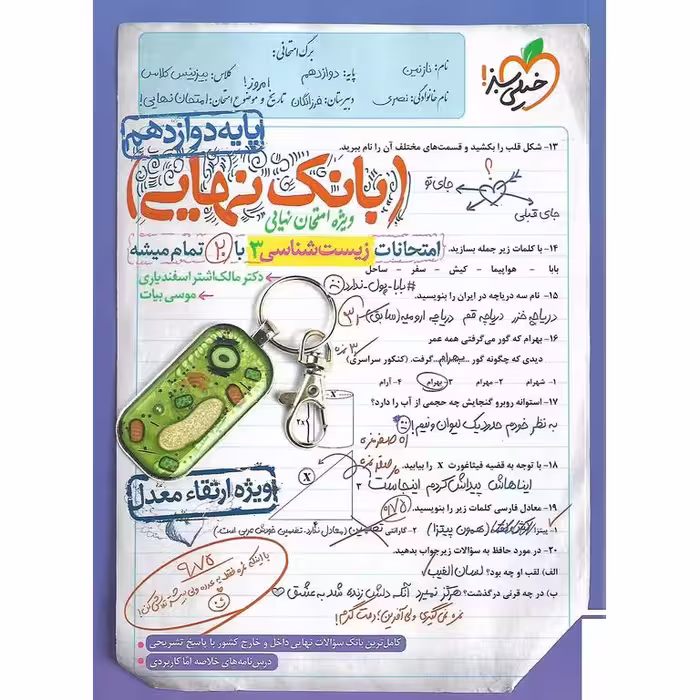 برگ امتحانی:
نام: نازنین
پایه: دوازدهم
کلاس: بیزینس کلاس
نام خانوادگی: نصیری
دبیرستان: فرزانگان
تاریخ و موضوع امتحان: امروز! امتحان نهایی!
خیلی سبز!
پایه دوازدهم
(بانک نهایی)
ویژه امتحان نهایی
امتحانات زیست‌شناسی ۳ با ۲۰ تمام میشه
دکتر مالک‌اشتر اسفندیاری
موسی بیات
۱۳- شکل قلب را بکشید و قسمت‌های مختلف آن را نام ببرید.
؟
جای تو
جای قبلی
۱۴- با کلمات زیر جمله بسازید.
بابا - هواپیما - کیش - سفر - ساحل
#بابا_پول_ندارد
۱۵- نام سه دریاچه در ایران را بنویسید.
دریاچه خزر دریاچه قم دریاچه ارومیه (سابق)
۱۶- بهرام که گور می‌گرفتی همه عمر
دیدی که چگونه گور ...بهرام... گرفت. (کنکور سراسری)
۱- شهرام ۲- مهرام ۳- بهرام ۴- آرام
۱۷- استوانه روبرو گنجایش چه حجمی از آب را دارد؟
به نظر خودم حدود یک لیوان و نیم!
X
۲X
۱۸- با توجه به قضیه فیثاغورث X را بیابید.
ایناهاش پیداش کردم اینجاست
X
۱۹- معادل فارسی کلمات زیر را بنویسید.
۱- پیتزا (همون پیتزا) ۲- گارانتی تضمین (معادل ندارد. تضمین خودش عربی است.)
۲۰- در مورد حافظ به سؤالات زیر جواب بدهید.
الف) لقب او چه بود؟ لسان الغیب
ب) در چه قرنی درگذشت؟ هرگز نمیرد آنکه دلش زنده شد به عشق
نمره نمی‌گیری ولی آفرین؛ دمت گرم!
ویژه ارتقاء معدل
۹/۷۵
کامل‌ترین بانک سؤالات نهایی داخل و خارج کشور با پاسخ تشریحی
درس‌نامه‌های خلاصه امّا کاربردی